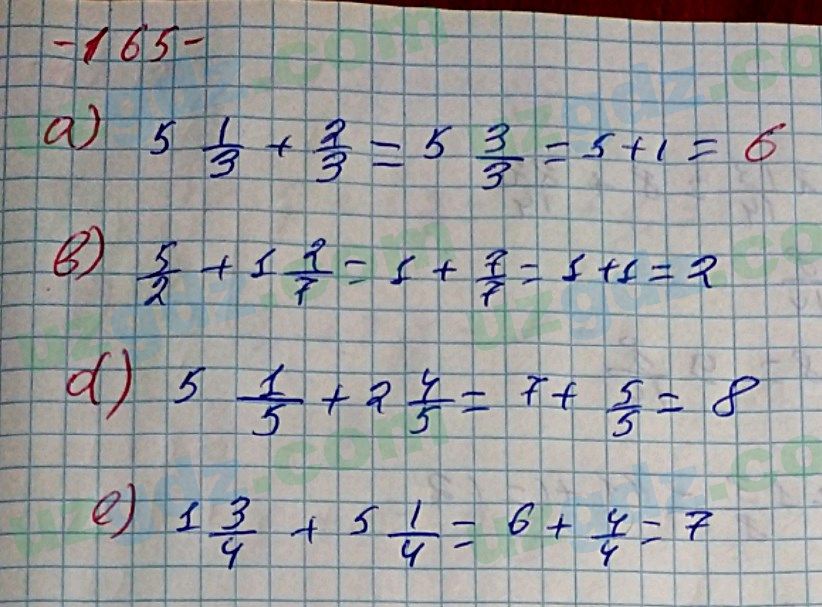 -165-
a) 5 1/3 + 2/3 = 5 3/3 = 5+1 = 6
b) 5/2 + 1 2/7 = 1 + 7/7 = 1+1 = 2
d) 5 1/5 + 2 4/5 = 7 + 5/5 = 8
e) 1 3/4 + 5 1/4 = 6 + 4/4 = 7
uzgdz.com